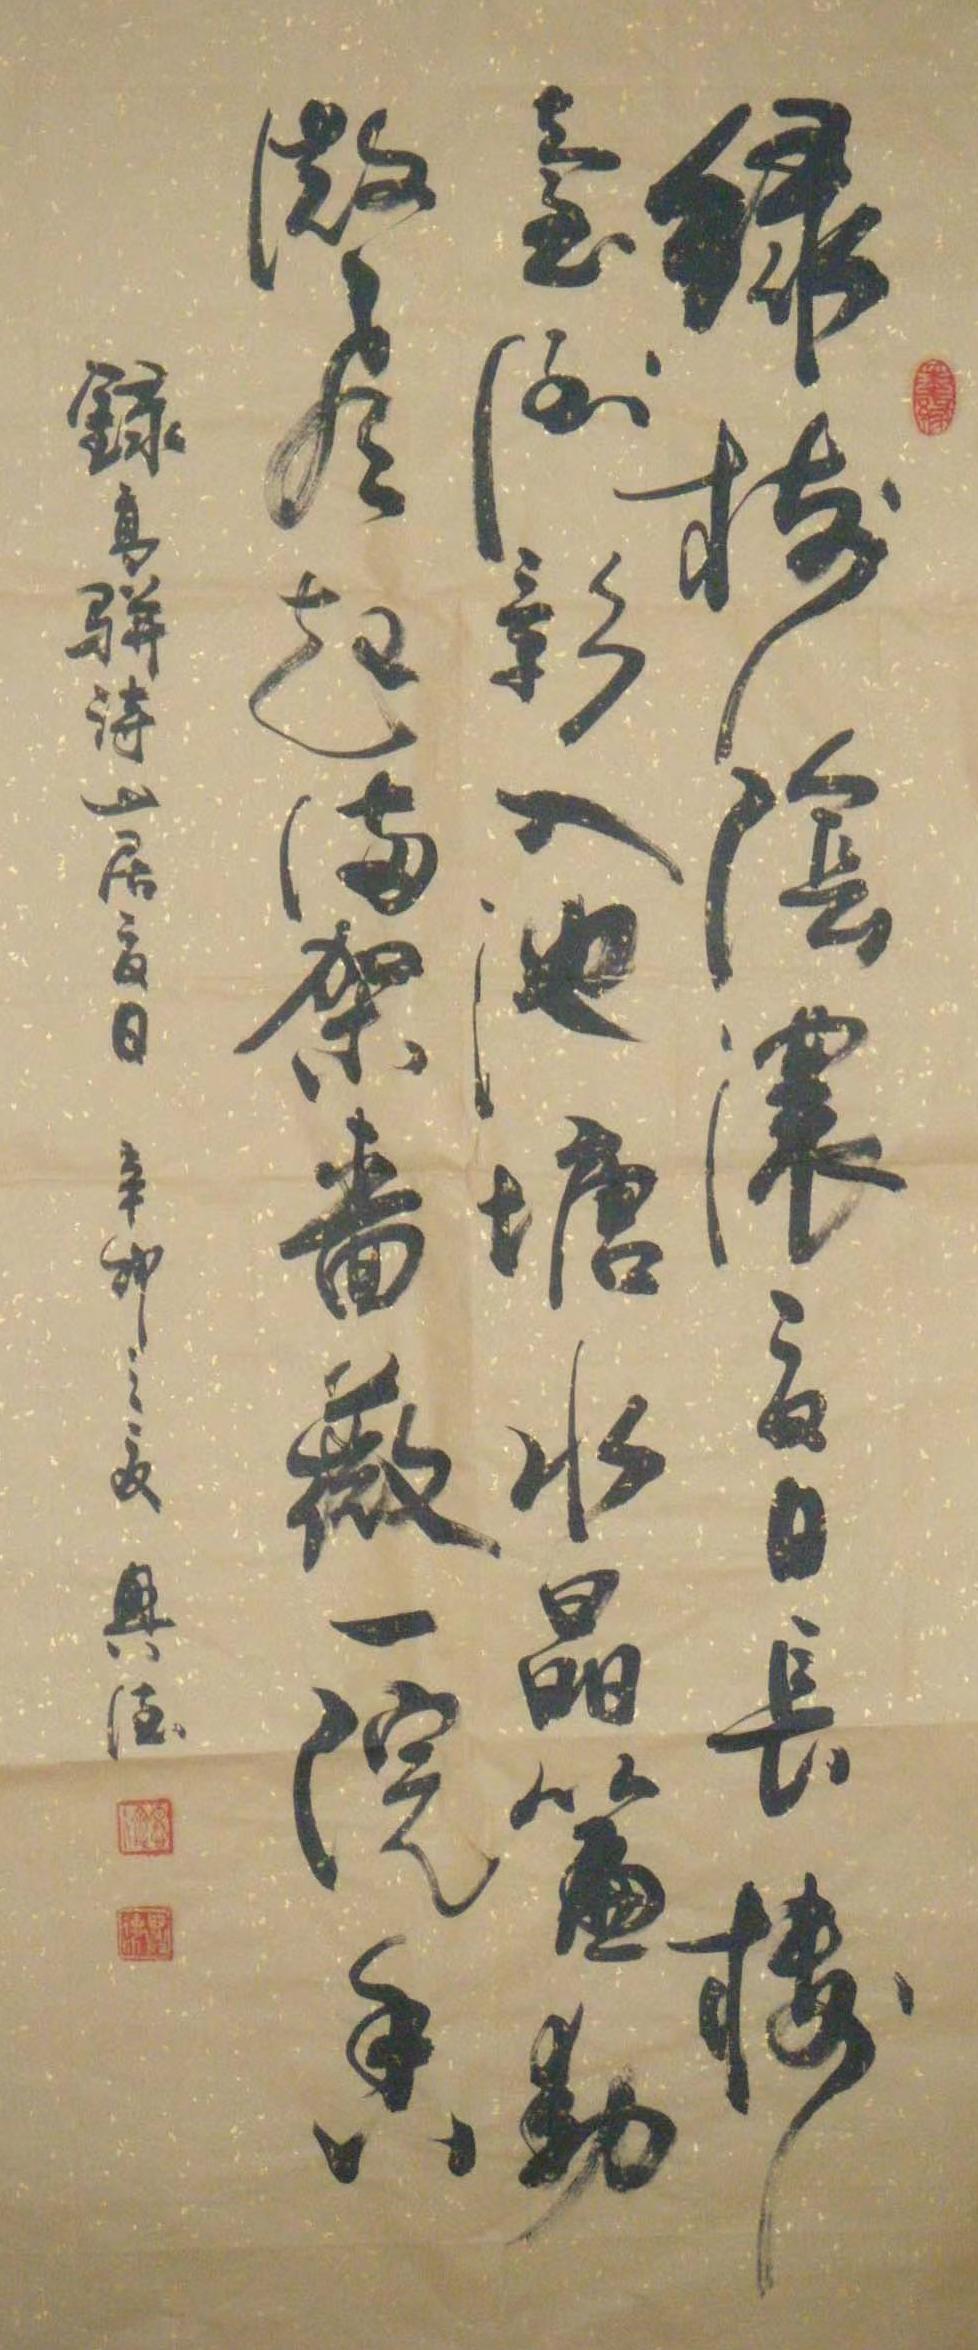 綠樹陰濃夏日長樓
臺倒影入池塘水晶簾動
微風起滿架薔薇一院香
錄高駢詩山居夏日 辛卯之夏 興德